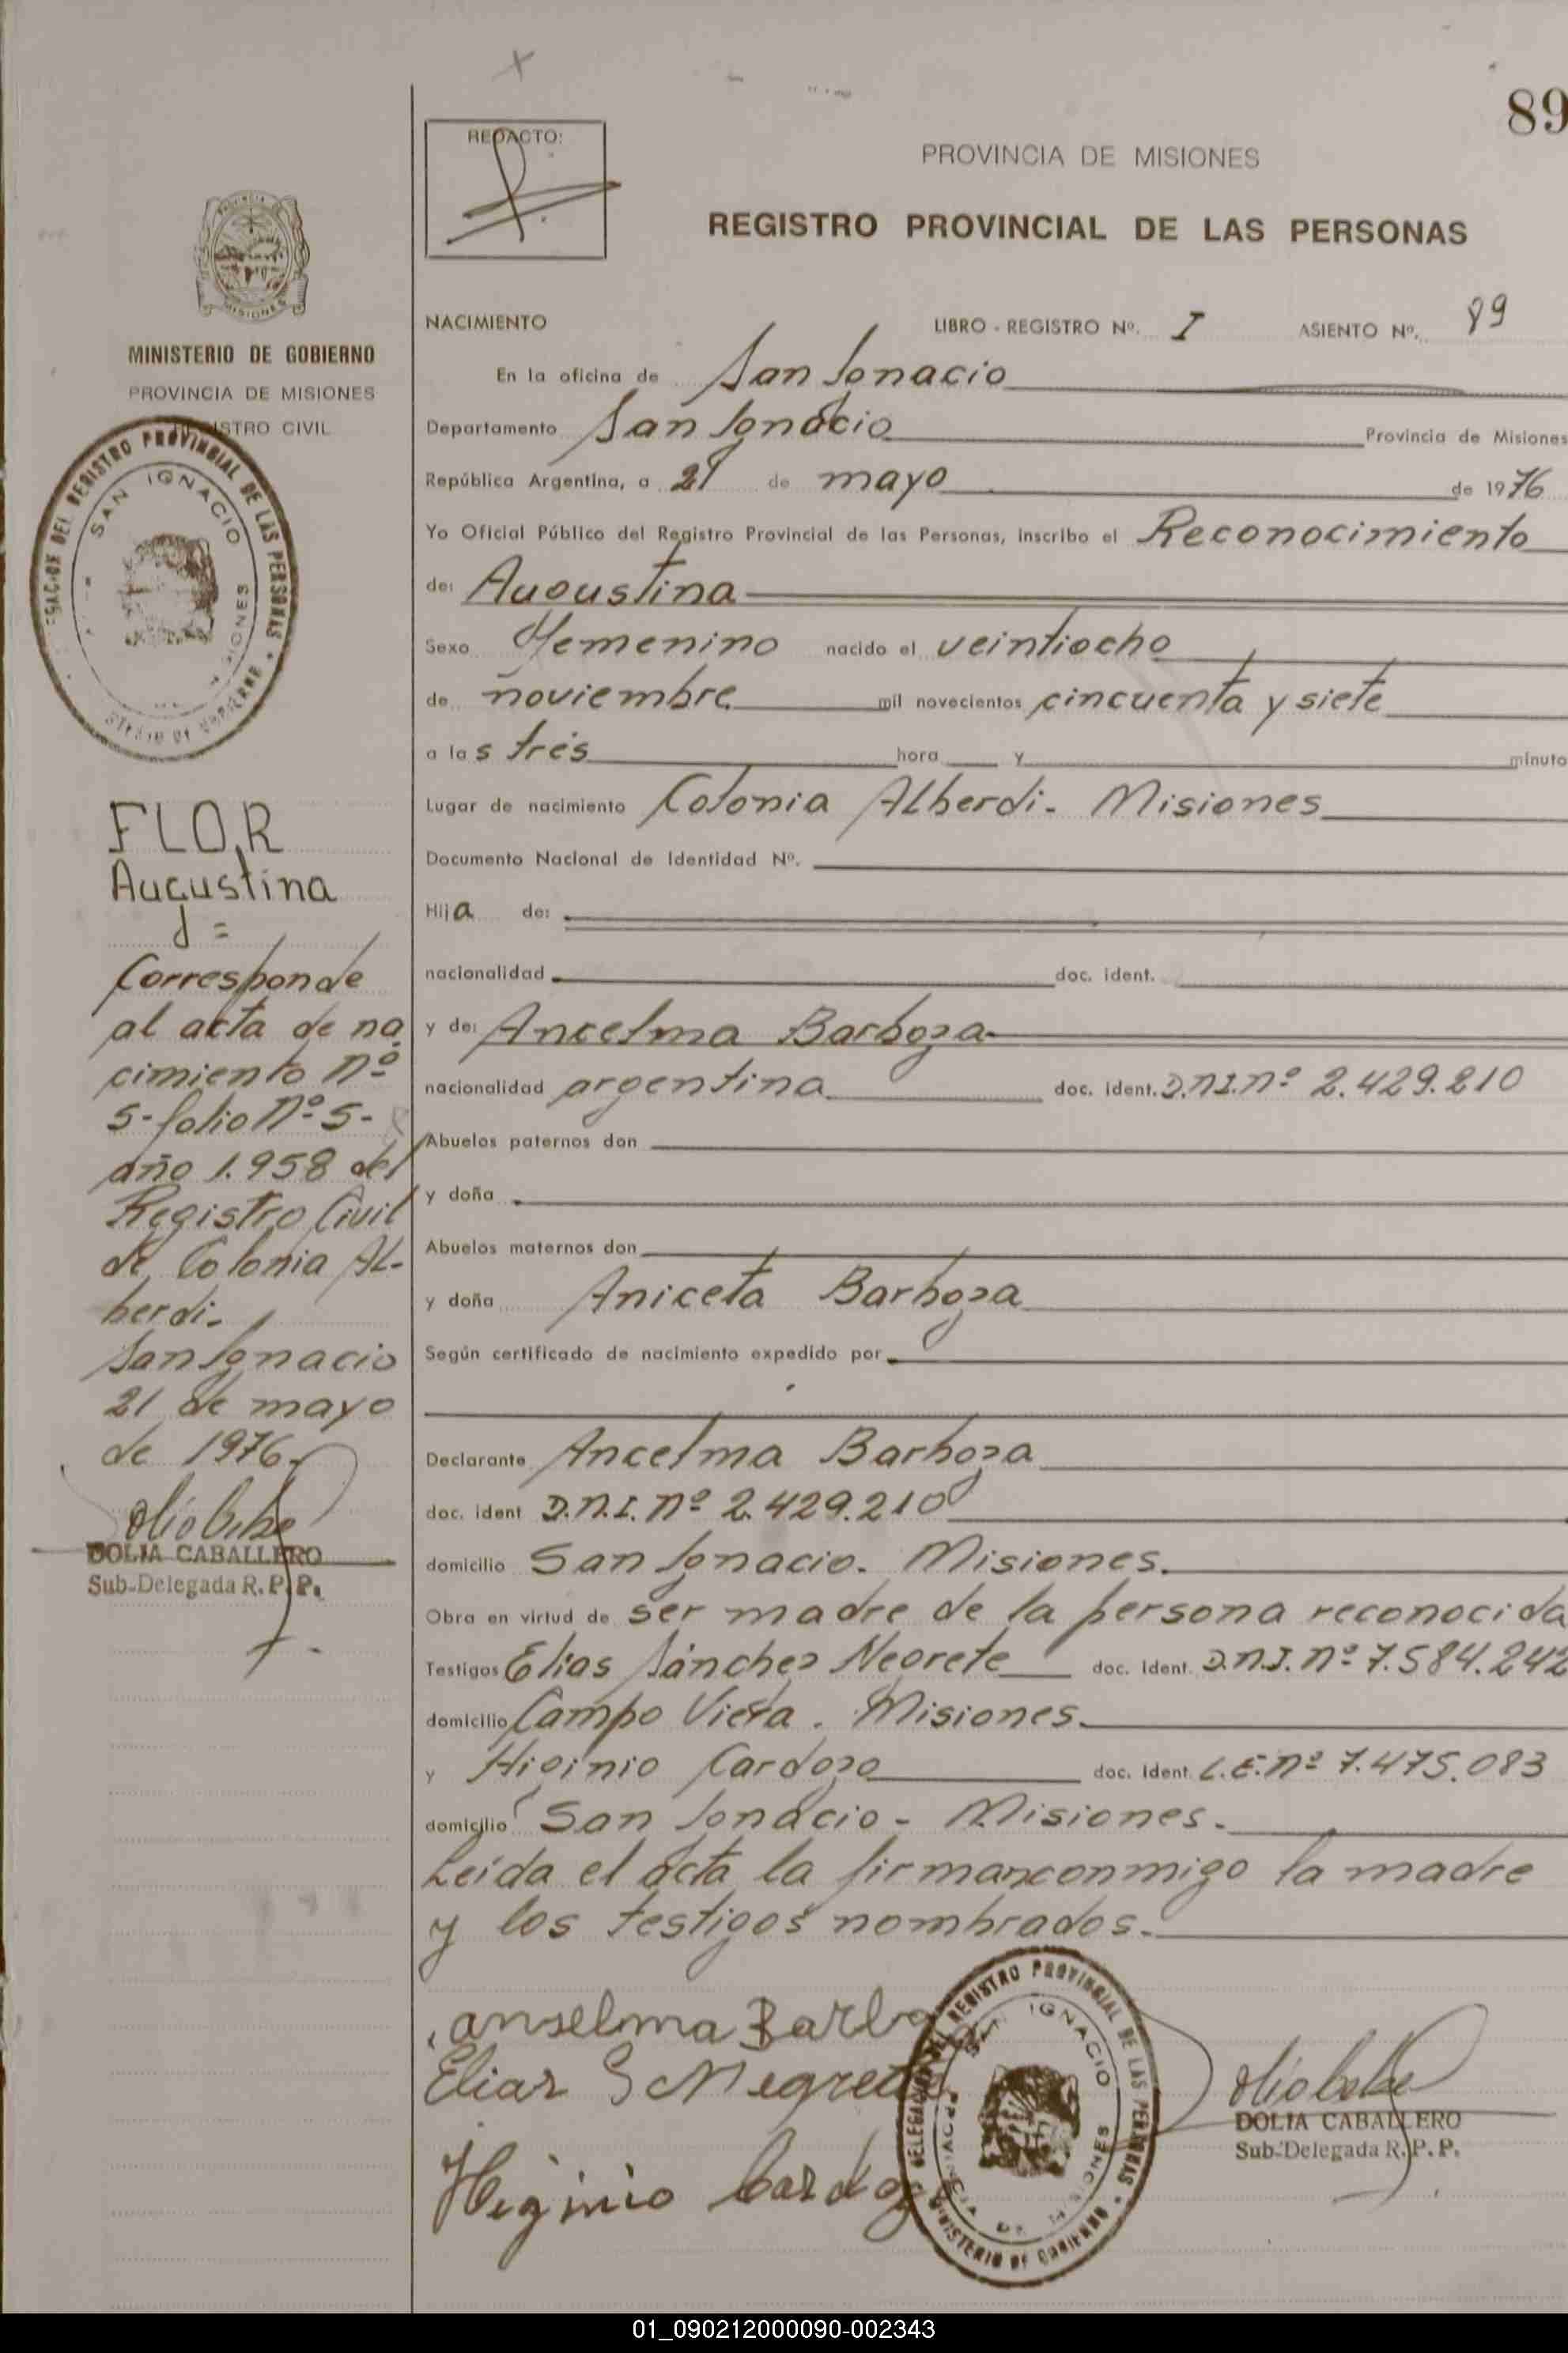 89
REDACTO:
PROVINCIA DE MISIONES
REGISTRO PROVINCIAL DE LAS PERSONAS
MINISTERIO DE GOBIERNO
PROVINCIA DE MISIONES
REGISTRO CIVIL
NACIMIENTO LIBRO - REGISTRO Nº. I ASIENTO Nº. 89
En la oficina de San Ignacio
Departamento San Ignacio Provincia de Misiones
República Argentina, a 21 de mayo de 1976
Yo Oficial Público del Registro Provincial de las Personas, inscribo el Reconocimiento
de: Augustina
Sexo Femenino nacido el veintiocho
de noviembre mil novecientos cincuenta y siete
a las tres hora y minuto
Lugar de nacimiento Colonia Alberdi- Misiones
Documento Nacional de Identidad Nº.
Hija de:
nacionalidad doc. ident.
y de: Ancelma Barboza
nacionalidad argentina doc. ident. D.N.I. Nº 2.429.210
Abuelos paternos don
y doña
Abuelos maternos don
y doña Aniceta Barboza
Según certificado de nacimiento expedido por
Declarante Ancelma Barboza
doc. ident D.N.I. Nº 2.429.210
domicilio San Ignacio. Misiones.
Obra en virtud de ser madre de la persona reconocida
Testigos Elias Sánchez Negrete doc. Ident. D.N.I. Nº 7.584.242
domicilio Campo Viera. Misiones.
y Higinio Cardozo doc. Ident. L.E. Nº 7.475.083
domicilio San Ignacio - Misiones.
Leída el acta la firman conmigo la madre
y los testigos nombrados.
anselma Barbo
Elias S Negrete
Higinio Cardozo
DELEGACION DEL REGISTRO PROVINCIAL DE LAS PERSONAS
SAN IGNACIO
PROVINCIA DE MISIONES
MINISTERIO DE GOBIERNO
DOLIA CABALLERO
Sub-Delegada R. P. P.
REGISTRO PROVINCIAL DE LAS PERSONAS
SAN IGNACIO
MISIONES
FLOR
Augustina
Corresponde
al acta de na
cimiento Nº
5-folio Nº 5-
año 1.958 del
Registro Civil
de Colonia Al-
berdi.
San Ignacio
21 de mayo
de 1976.
DOLIA CABALLERO
Sub-Delegada R. P. P.
01_090212000090-002343